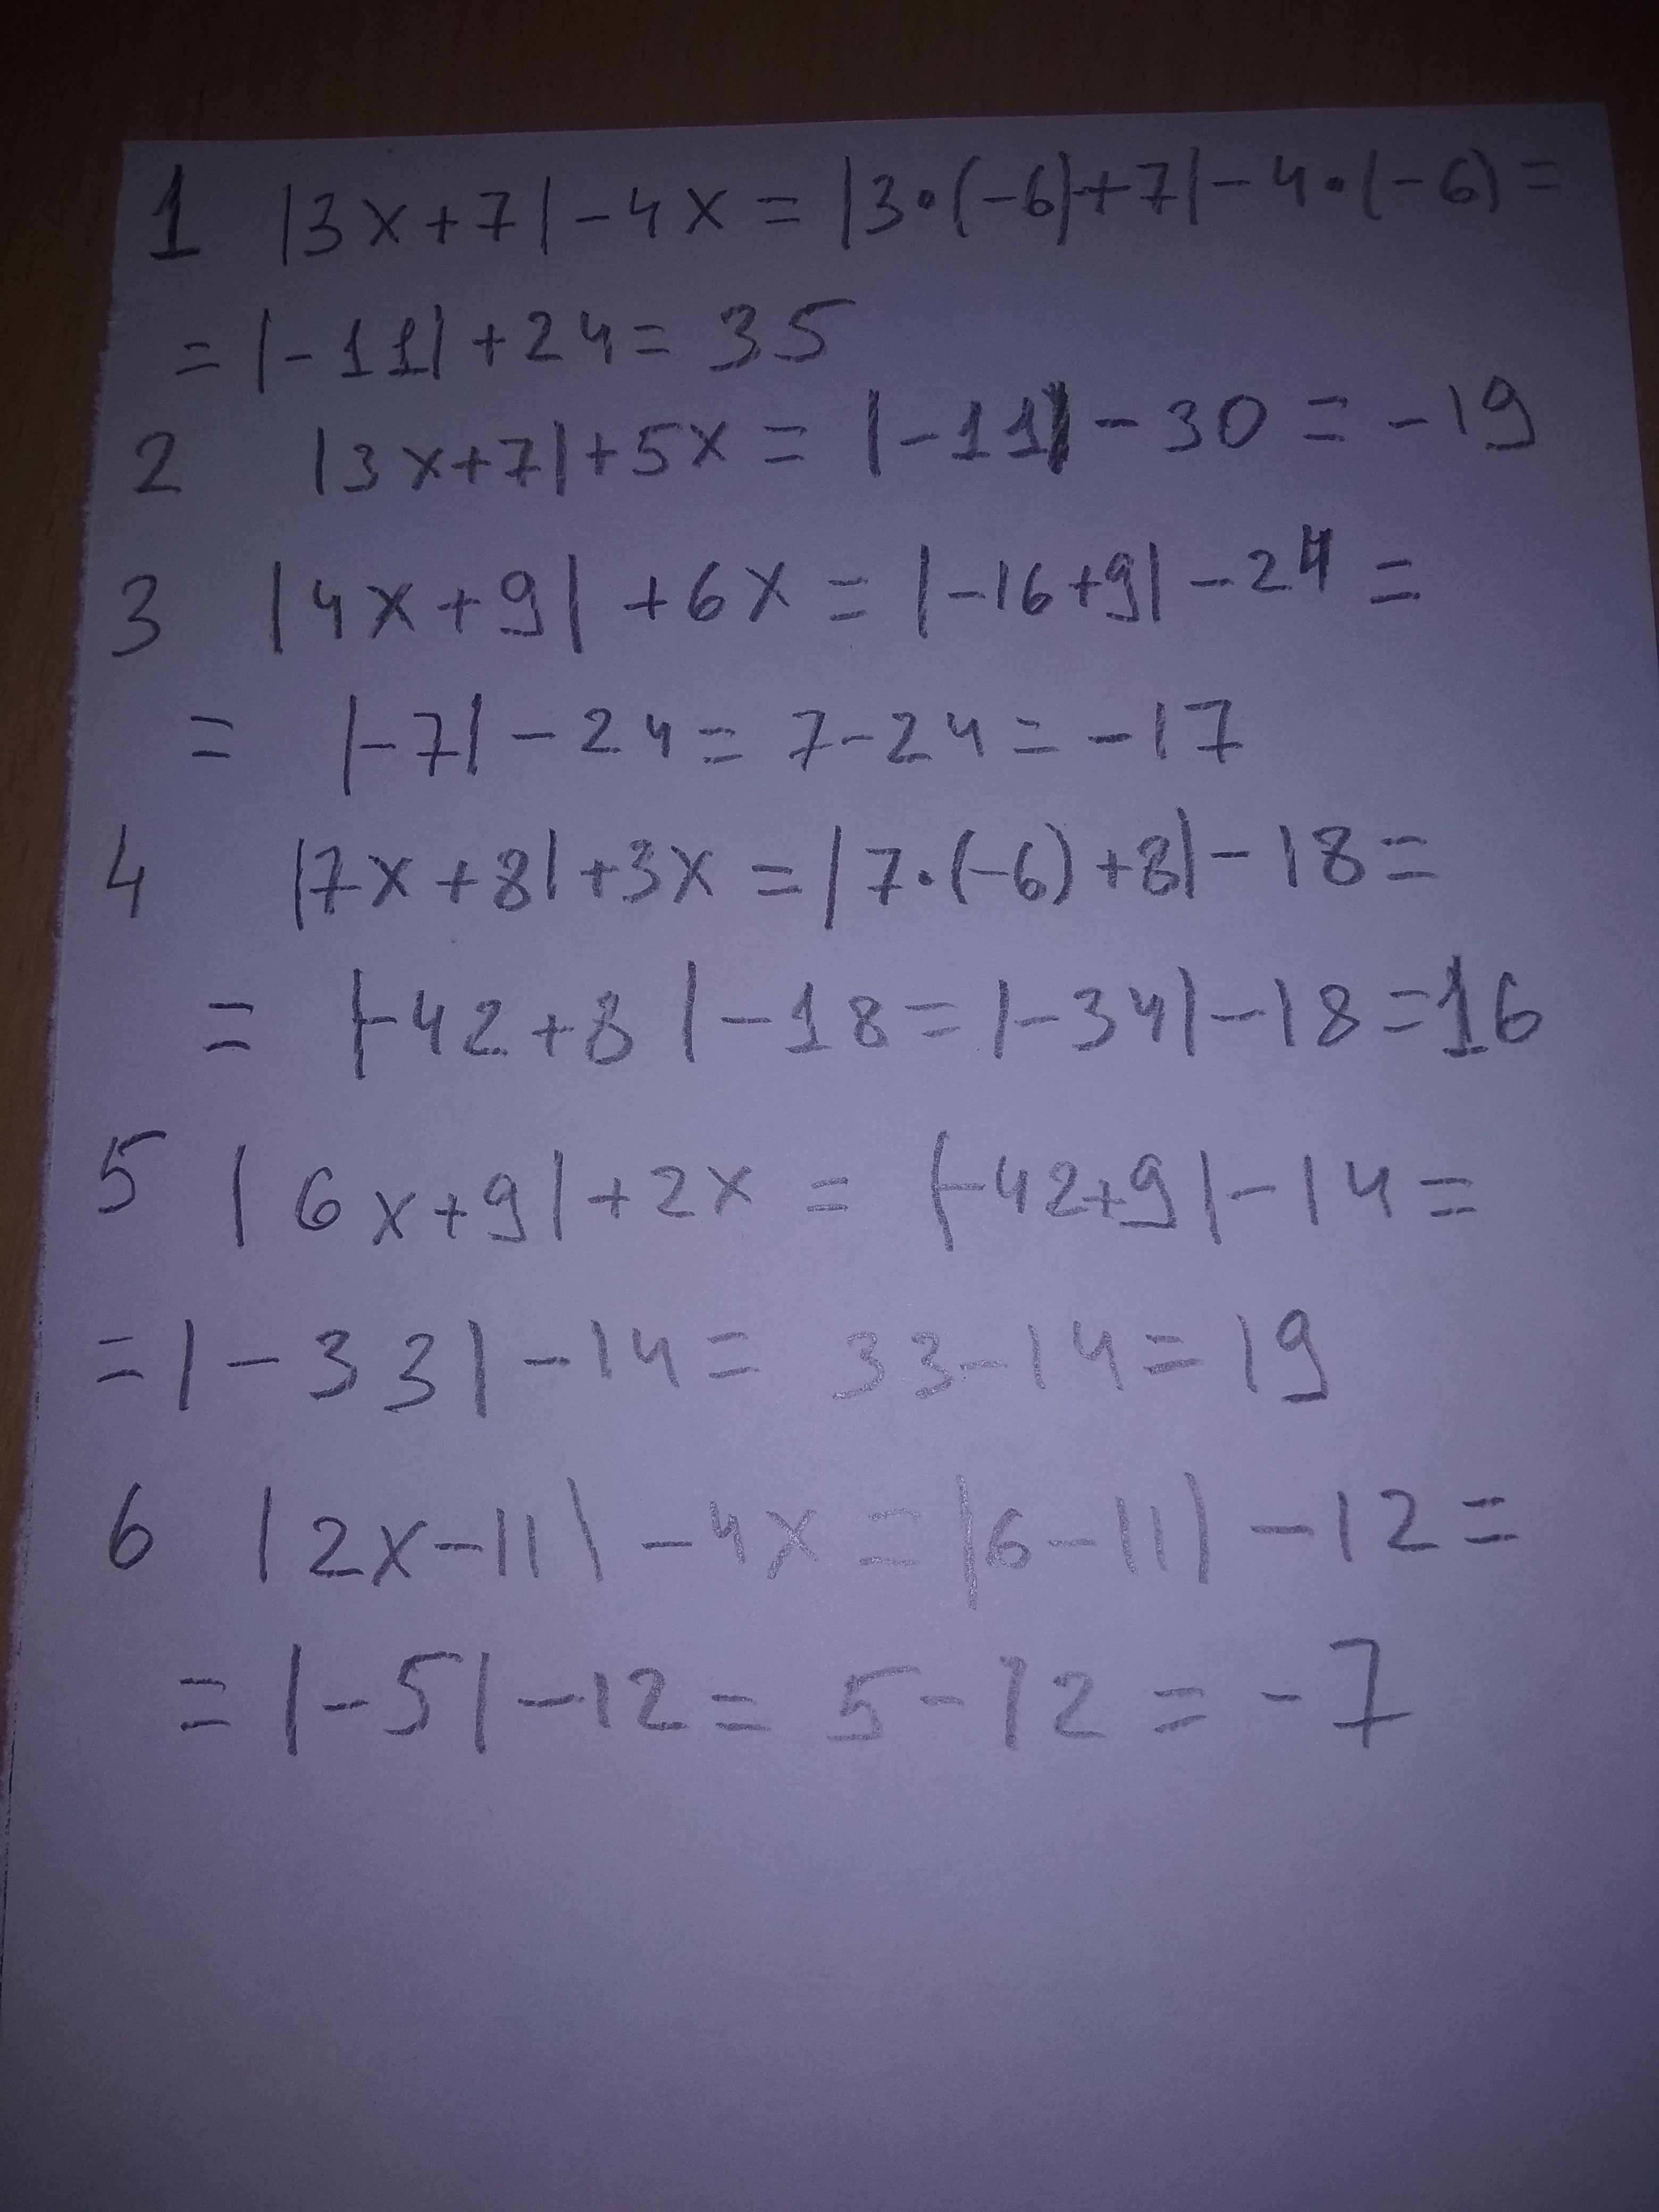 1 |3x+7|-4x=|3·(-6)+7|-4·(-6)=
=|-11|+24=35
2 |3x+7|+5x=|-11|-30=-19
3 |4x+9|+6x=|-16+9|-24=
=|-7|-24=7-24=-17
4 |7x+8|+3x=|7·(-6)+8|-18=
=|-42+8|-18=|-34|-18=16
5 |6x+9|+2x=|-42+9|-14=
=|-33|-14=33-14=19
6 |2x-11|-4x=|6-11|-12=
=|-5|-12=5-12=-7